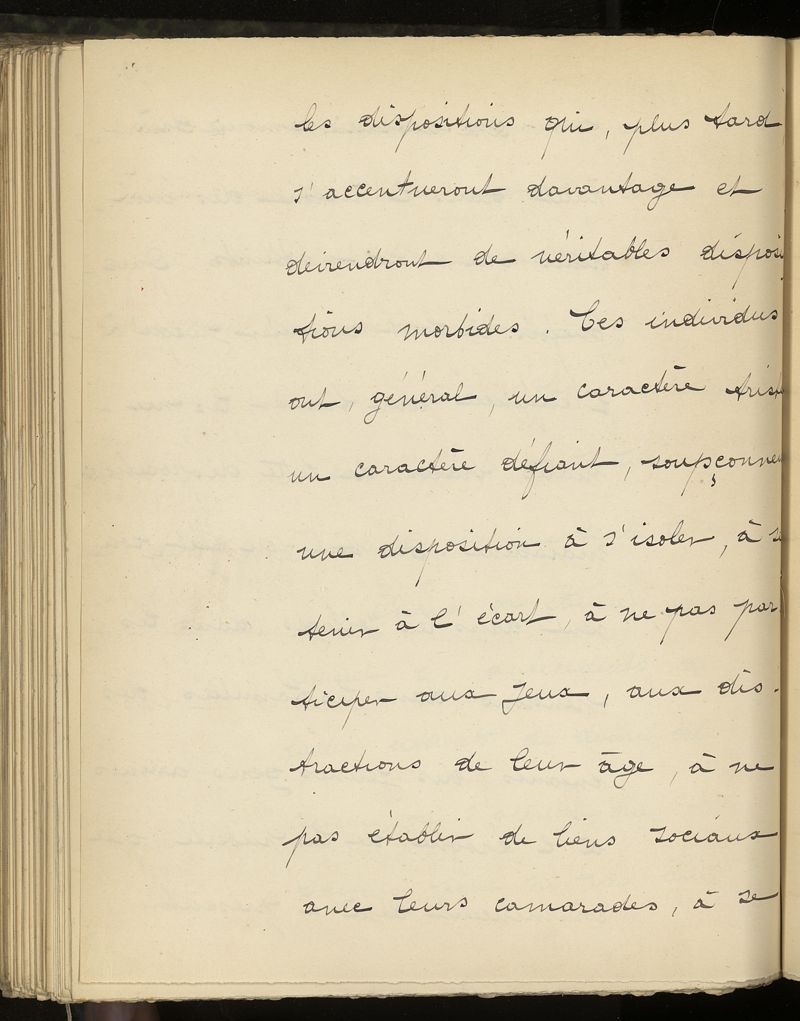 les dispositions qui, plus tard
s'accentueront davantage et
deviendront de véritables disposi
tions morbides. Ces individus
ont, général, un caractère trist
un caractère défiant, soupçonne
une disposition à s'isoler, à s
tenir à l'écart, à ne pas par
ticiper aux jeux, aux dis-
tractions de leur âge, à ne
pas établir de liens sociaux
avec leurs camarades, à se